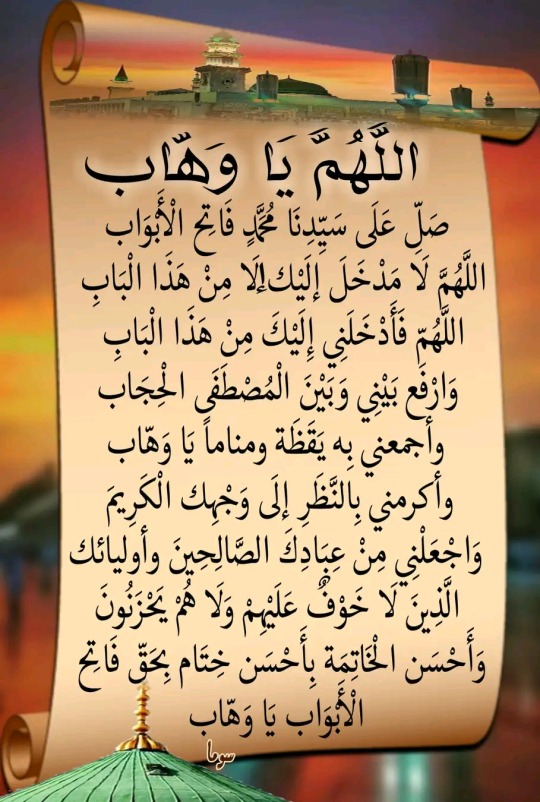 اللَّهُمَّ يَا وَهَّاب
صَلِّ عَلَى سَيِّدِنَا مُحَمَّدٍ فَاتِحِ الْأَبْوَاب
اللَّهُمَّ لَا مَدْخَلَ إلَيْكَ إلَا مِنْ هَذَا الْبَابِ
اللَّهُمّ فَأَدْخَلَنِي إِلَيْكَ مِنْ هَذَا الْبَابِ
وَارْفَع بَيْنِي وَبَيْنَ الْمُصْطَفَى الْحِجَاب
وأجمعني بِه يَقَظَة ومناماً يَا وَهّاب
وأكرمني بِالنَّظَرِ إلَى وَجْهِك الْكَرِيمَ
وَاجْعَلْنِي مِنْ عِبَادِكَ الصَّالِحِينَ وأوليائك
الَّذِينَ لَا خَوْفٌ عَلَيْهِمْ وَلَا هُمْ يَحْزَنُونَ
وَأَحْسَن الْخَاتِمَة بِأَحْسَن خِتَام بِحَقّ فَاتِح
الْأَبْوَاب يَا وَهّاب
سوما